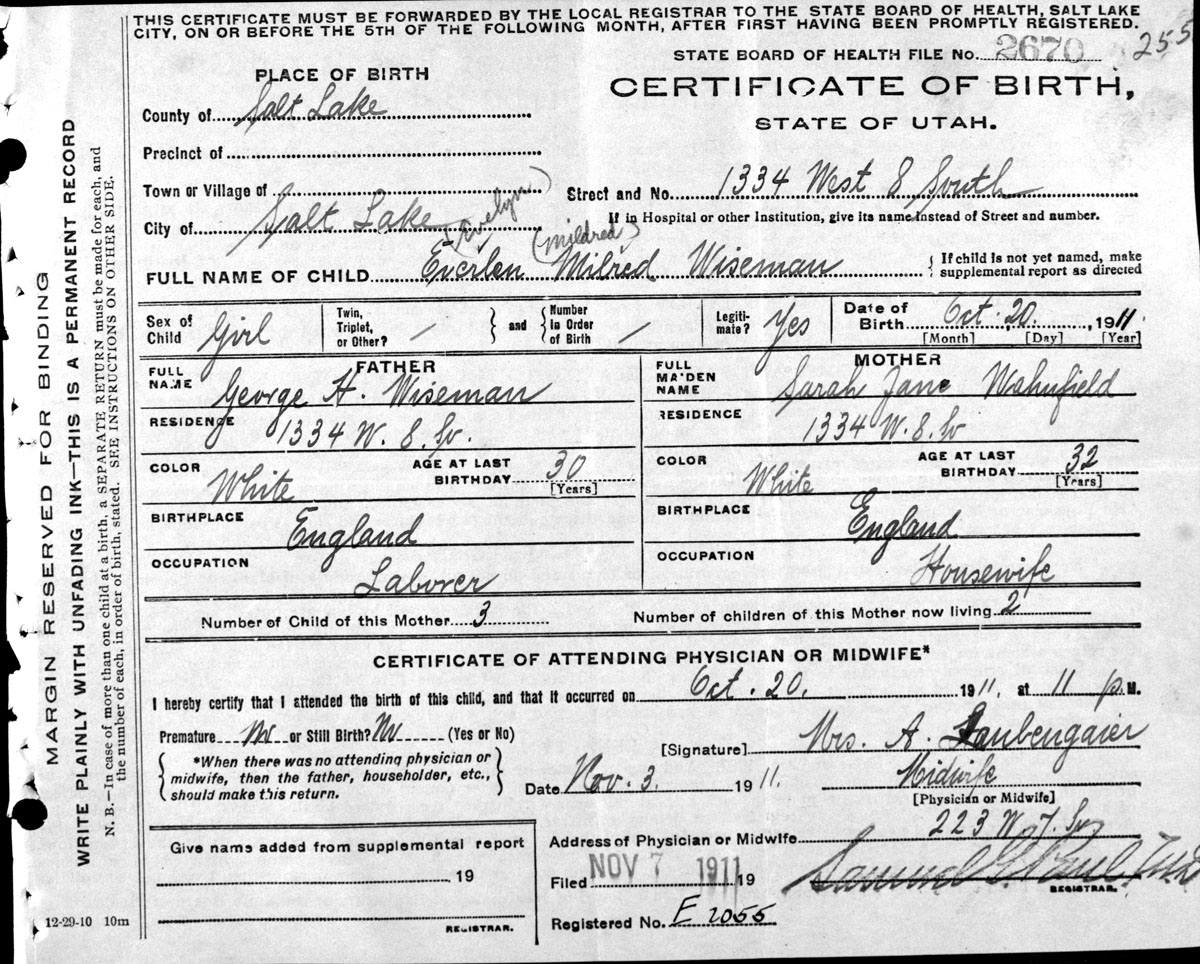 THIS CERTIFICATE MUST BE FORWARDED BY THE LOCAL REGISTRAR TO THE STATE BOARD OF HEALTH, SALT LAKE
CITY, ON OR BEFORE THE 5TH OF THE FOLLOWING MONTH, AFTER FIRST HAVING BEEN PROMPTLY REGISTERED.
STATE BOARD OF HEALTH FILE No. 2670 255
PLACE OF BIRTH
CERTIFICATE OF BIRTH,
STATE OF UTAH.
County of Salt Lake
Precinct of
Town or Village of
Street and No. 1334 West 8 South
City of Salt Lake
If in Hospital or other Institution, give its name instead of Street and number.
(Evelyn) (Mildred)
FULL NAME OF CHILD Everlen Milred Wiseman
{ If child is not yet named, make
supplemental report as directed
Sex of Child Girl
Twin, Triplet, or Other? /
and
Number in Order of Birth /
Legiti-mate? Yes
Date of Birth Oct. 20. , 1911.
[Month] [Day] [Year]
FATHER
FULL NAME George H. Wiseman
RESIDENCE 1334 W. 8. So.
COLOR White
AGE AT LAST BIRTHDAY 30
[Years]
BIRTHPLACE England
OCCUPATION Laborer
MOTHER
FULL MAIDEN NAME Sarah Jane
RESIDENCE 1334 W. 8. So
COLOR White
AGE AT LAST BIRTHDAY 32
[Years]
BIRTHPLACE England
OCCUPATION Housewife
Number of Child of this Mother 3
Number of children of this Mother now living 2
CERTIFICATE OF ATTENDING PHYSICIAN OR MIDWIFE*
I hereby certify that I attended the birth of this child, and that it occurred on Oct. 20. 1911. at 11 p. M.
Premature No or Still Birth? No (Yes or No)
*When there was no attending physician or
midwife, then the father, householder, etc.,
should make this return.
[Signature] Mrs. A. Laubengaier
Date Nov. 3. 1911.
Midwife
[Physician or Midwife]
Address of Physician or Midwife 223 W. 7. So
Give name added from supplemental report
19
REGISTRAR.
Filed NOV 7 1911 19
Samuel G. Paul
REGISTRAR.
Registered No. E 2055
12-29-10 10m
MARGIN RESERVED FOR BINDING
WRITE PLAINLY WITH UNFADING INK—THIS IS A PERMANENT RECORD
N. B.—In case of more than one child at a birth, a SEPARATE RETURN must be made for each, and
the number of each, in order of birth, stated. SEE INSTRUCTIONS ON OTHER SIDE.